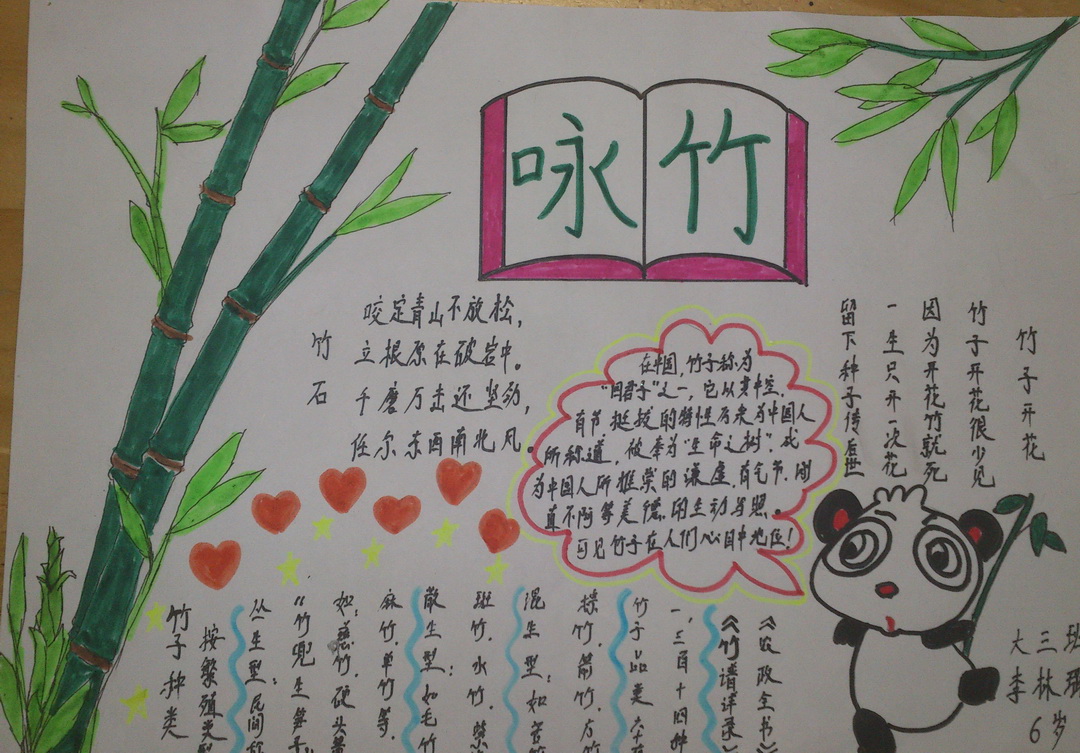 咏竹
竹石
咬定青山不放松,
立根原在破岩中。
千磨万击还坚劲,
任尔东西南北风。
在中国,竹子称为
“四君子”之一,它以其中空、
有节挺拔的特性历来为中国人
所称道,被奉为“生命之树”。成
为中国人所推崇的谦虚、有气节、刚
直不阿等美德的生动写照。
可见竹子在人们心目中地位!
竹子开花
竹子开花很少见
因为开花竹就死
一生只开一次花
留下种子传后世
竹子种类
按繁殖类型
丛生型:民间称
“竹兜生笋子”
如:慈竹,硬头
麻竹,单竹等.
散生型:如毛竹
斑竹,水竹,
混生型:如苦竹
棕竹,箭竹,方竹
竹子品类
一,三百十四种
《竹谱详录》
《农政全书》
大三班
李林
6岁